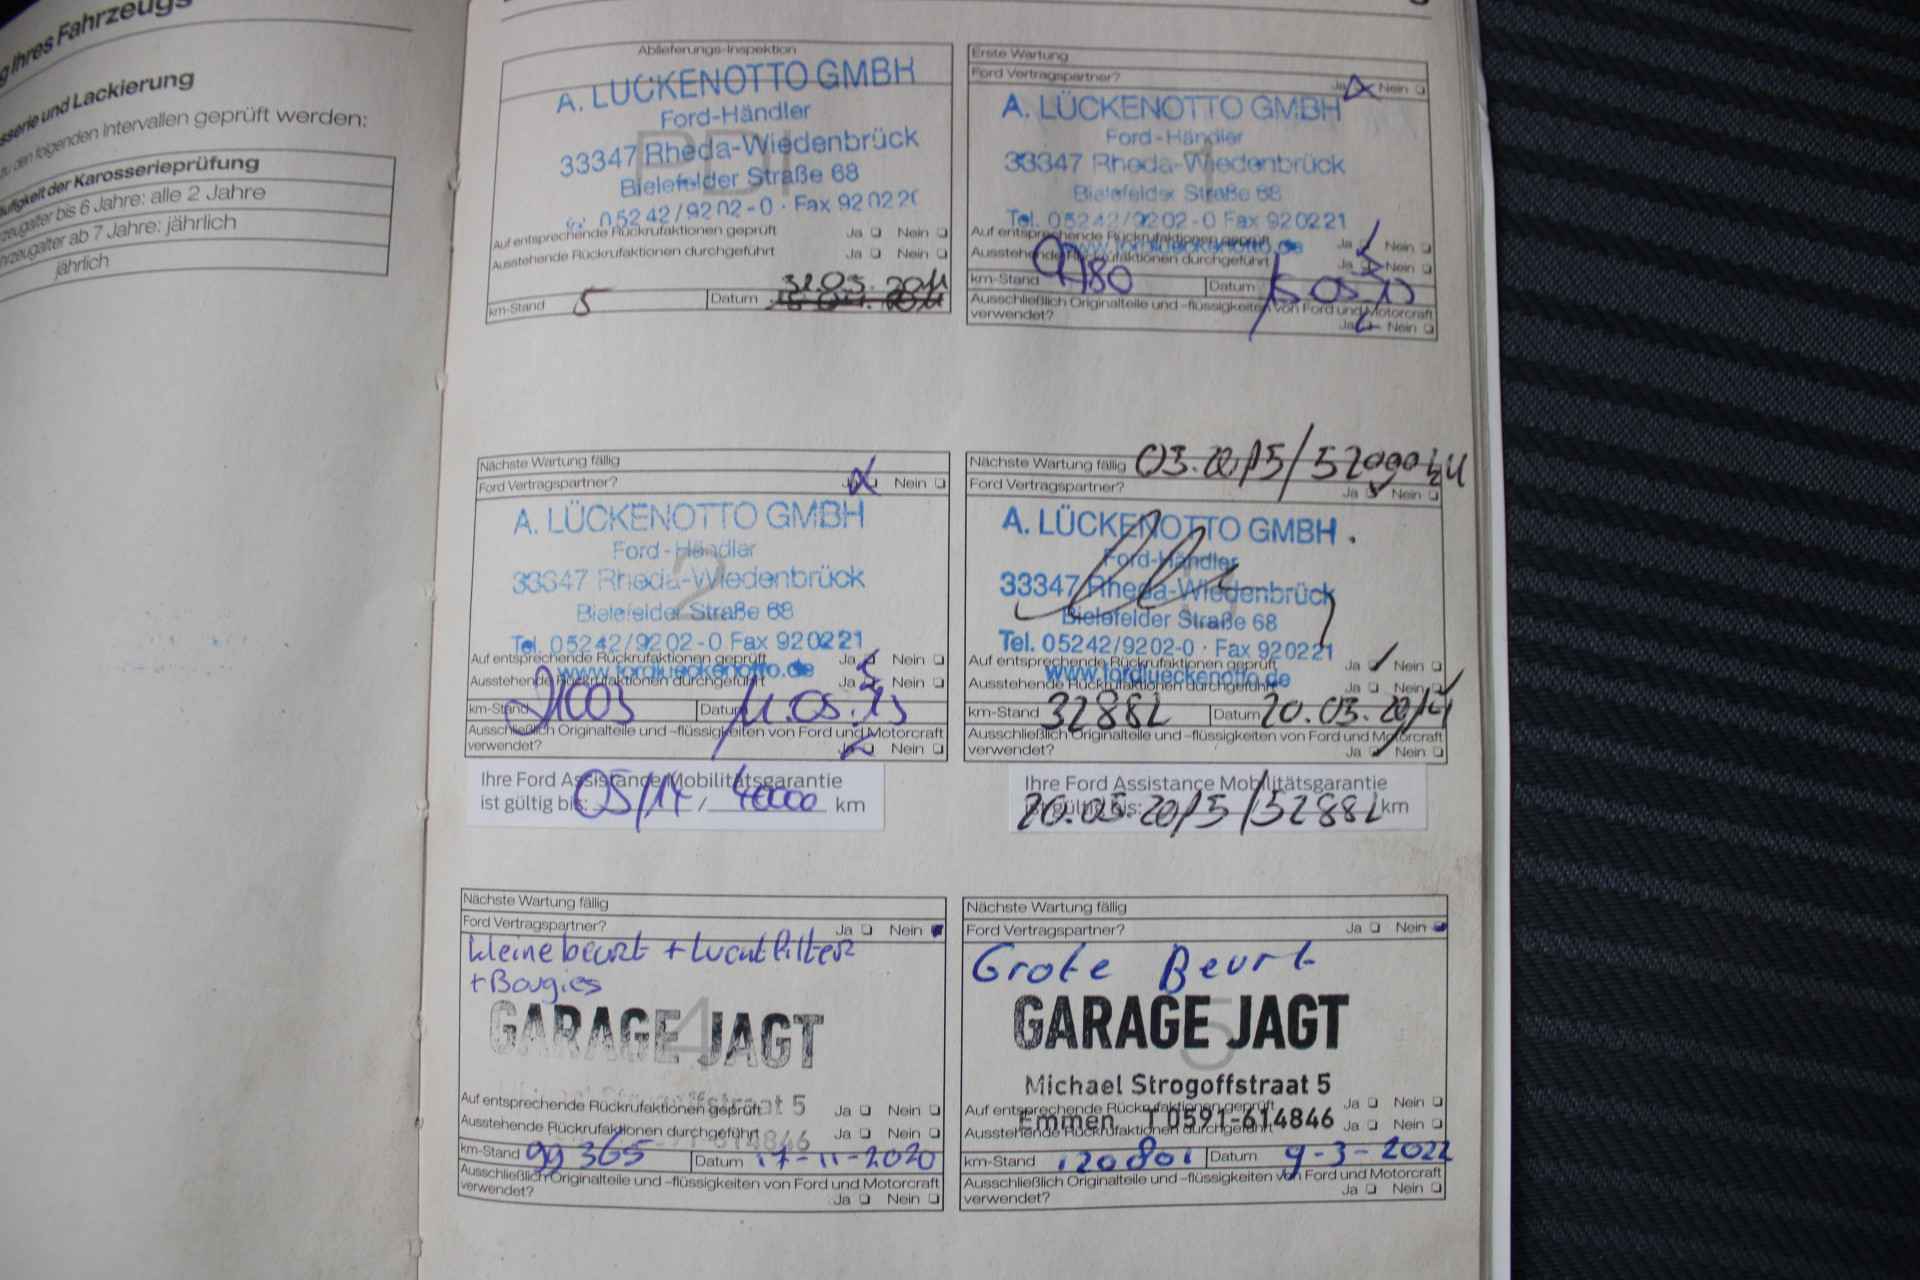 Ihres Fahrzeugs
und Lackierung
folgenden Intervallen geprüft werden:
der Karosserieprüfung
bis 6 Jahre: alle 2 Jahre
ab 7 Jahre: jährlich
jährlich
Ablieferungs-Inspektion
A. LÜCKENOTTO GMBH
Ford-Händler
33347 Rheda-Wiedenbrück
Bielefelder Straße 68
05242/9202-0 · Fax 92022
PDI
Auf entsprechende Rückrufaktionen geprüft Ja Nein
Ausstehende Rückrufaktionen durchgeführt Ja Nein
31.03.2011
km-Stand 5 Datum
Erste Wartung
Ford Vertragspartner? Ja Nein
A. LÜCKENOTTO GMBH
Ford-Händler
33347 Rheda-Wiedenbrück
Bielefelder Straße 68
Tel. 05242/9202-0 Fax 920221
Auf entsprechende Rückrufaktionen geprüft Ja Nein
Ausstehende Rückrufaktionen durchgeführt Ja Nein
km-Stand Datum
Ausschließlich Originalteile und -flüssigkeiten von Ford und Motorcraft
verwendet? Ja Nein
Nächste Wartung fällig
Ford Vertragspartner? Nein
A. LÜCKENOTTO GMBH
Ford-Händler
2
33347 Rheda-Wiedenbrück
Bielefelder Straße 68
Tel. 05242/9202-0 Fax 920221
Auf entsprechende Rückrufaktionen geprüft Ja Nein
www.fordlueckenotto.de
Ausstehende Rückrufaktionen durchgeführt Ja Nein
km-Stand 21003 Datum 11.03.13
Ausschließlich Originalteile und -flüssigkeiten von Ford und Motorcraft
verwendet? Ja Nein
Ihre Ford Assistance Mobilitätsgarantie
ist gültig bis: 05/14 / 40000 km
Nächste Wartung fällig 03.2015/52000
Ford Vertragspartner? Ja Nein
A. LÜCKENOTTO GMBH
Ford-Händler
33347 Rheda-Wiedenbrück
Bielefelder Straße 68
Tel. 05242/9202-0 · Fax 920221
Auf entsprechende Rückrufaktionen geprüft Ja Nein
www.fordlueckenotto.de
Ausstehende Rückrufaktionen durchgeführt Ja Nein
km-Stand 32882 Datum 20.03.2014
Ausschließlich Originalteile und -flüssigkeiten von Ford und Motorcraft
verwendet? Ja Nein
Ihre Ford Assistance Mobilitätsgarantie
ist gültig bis: 20.03.2015/52882 km
Nächste Wartung fällig
Ford Vertragspartner? Ja Nein
kleine beurt + Luchtfilter
+ Bougies
GARAGE JAGT
4
Auf entsprechende Rückrufaktionen geprüft Ja Nein
Ausstehende Rückrufaktionen durchgeführt Ja Nein
km-Stand 99365 Datum 17-11-2020
Ausschließlich Originalteile und -flüssigkeiten von Ford und Motorcraft
verwendet? Ja Nein
Nächste Wartung fällig
Ford Vertragspartner? Ja Nein
Grote Beurt
GARAGE JAGT
5
Michael Strogoffstraat 5
Auf entsprechende Rückrufaktionen geprüft Ja Nein
Emmen T 0591-614846
Ausstehende Rückrufaktionen durchgeführt Ja Nein
km-Stand 120801 Datum 9-3-2022
Ausschließlich Originalteile und -flüssigkeiten von Ford und Motorcraft
verwendet? Ja Nein